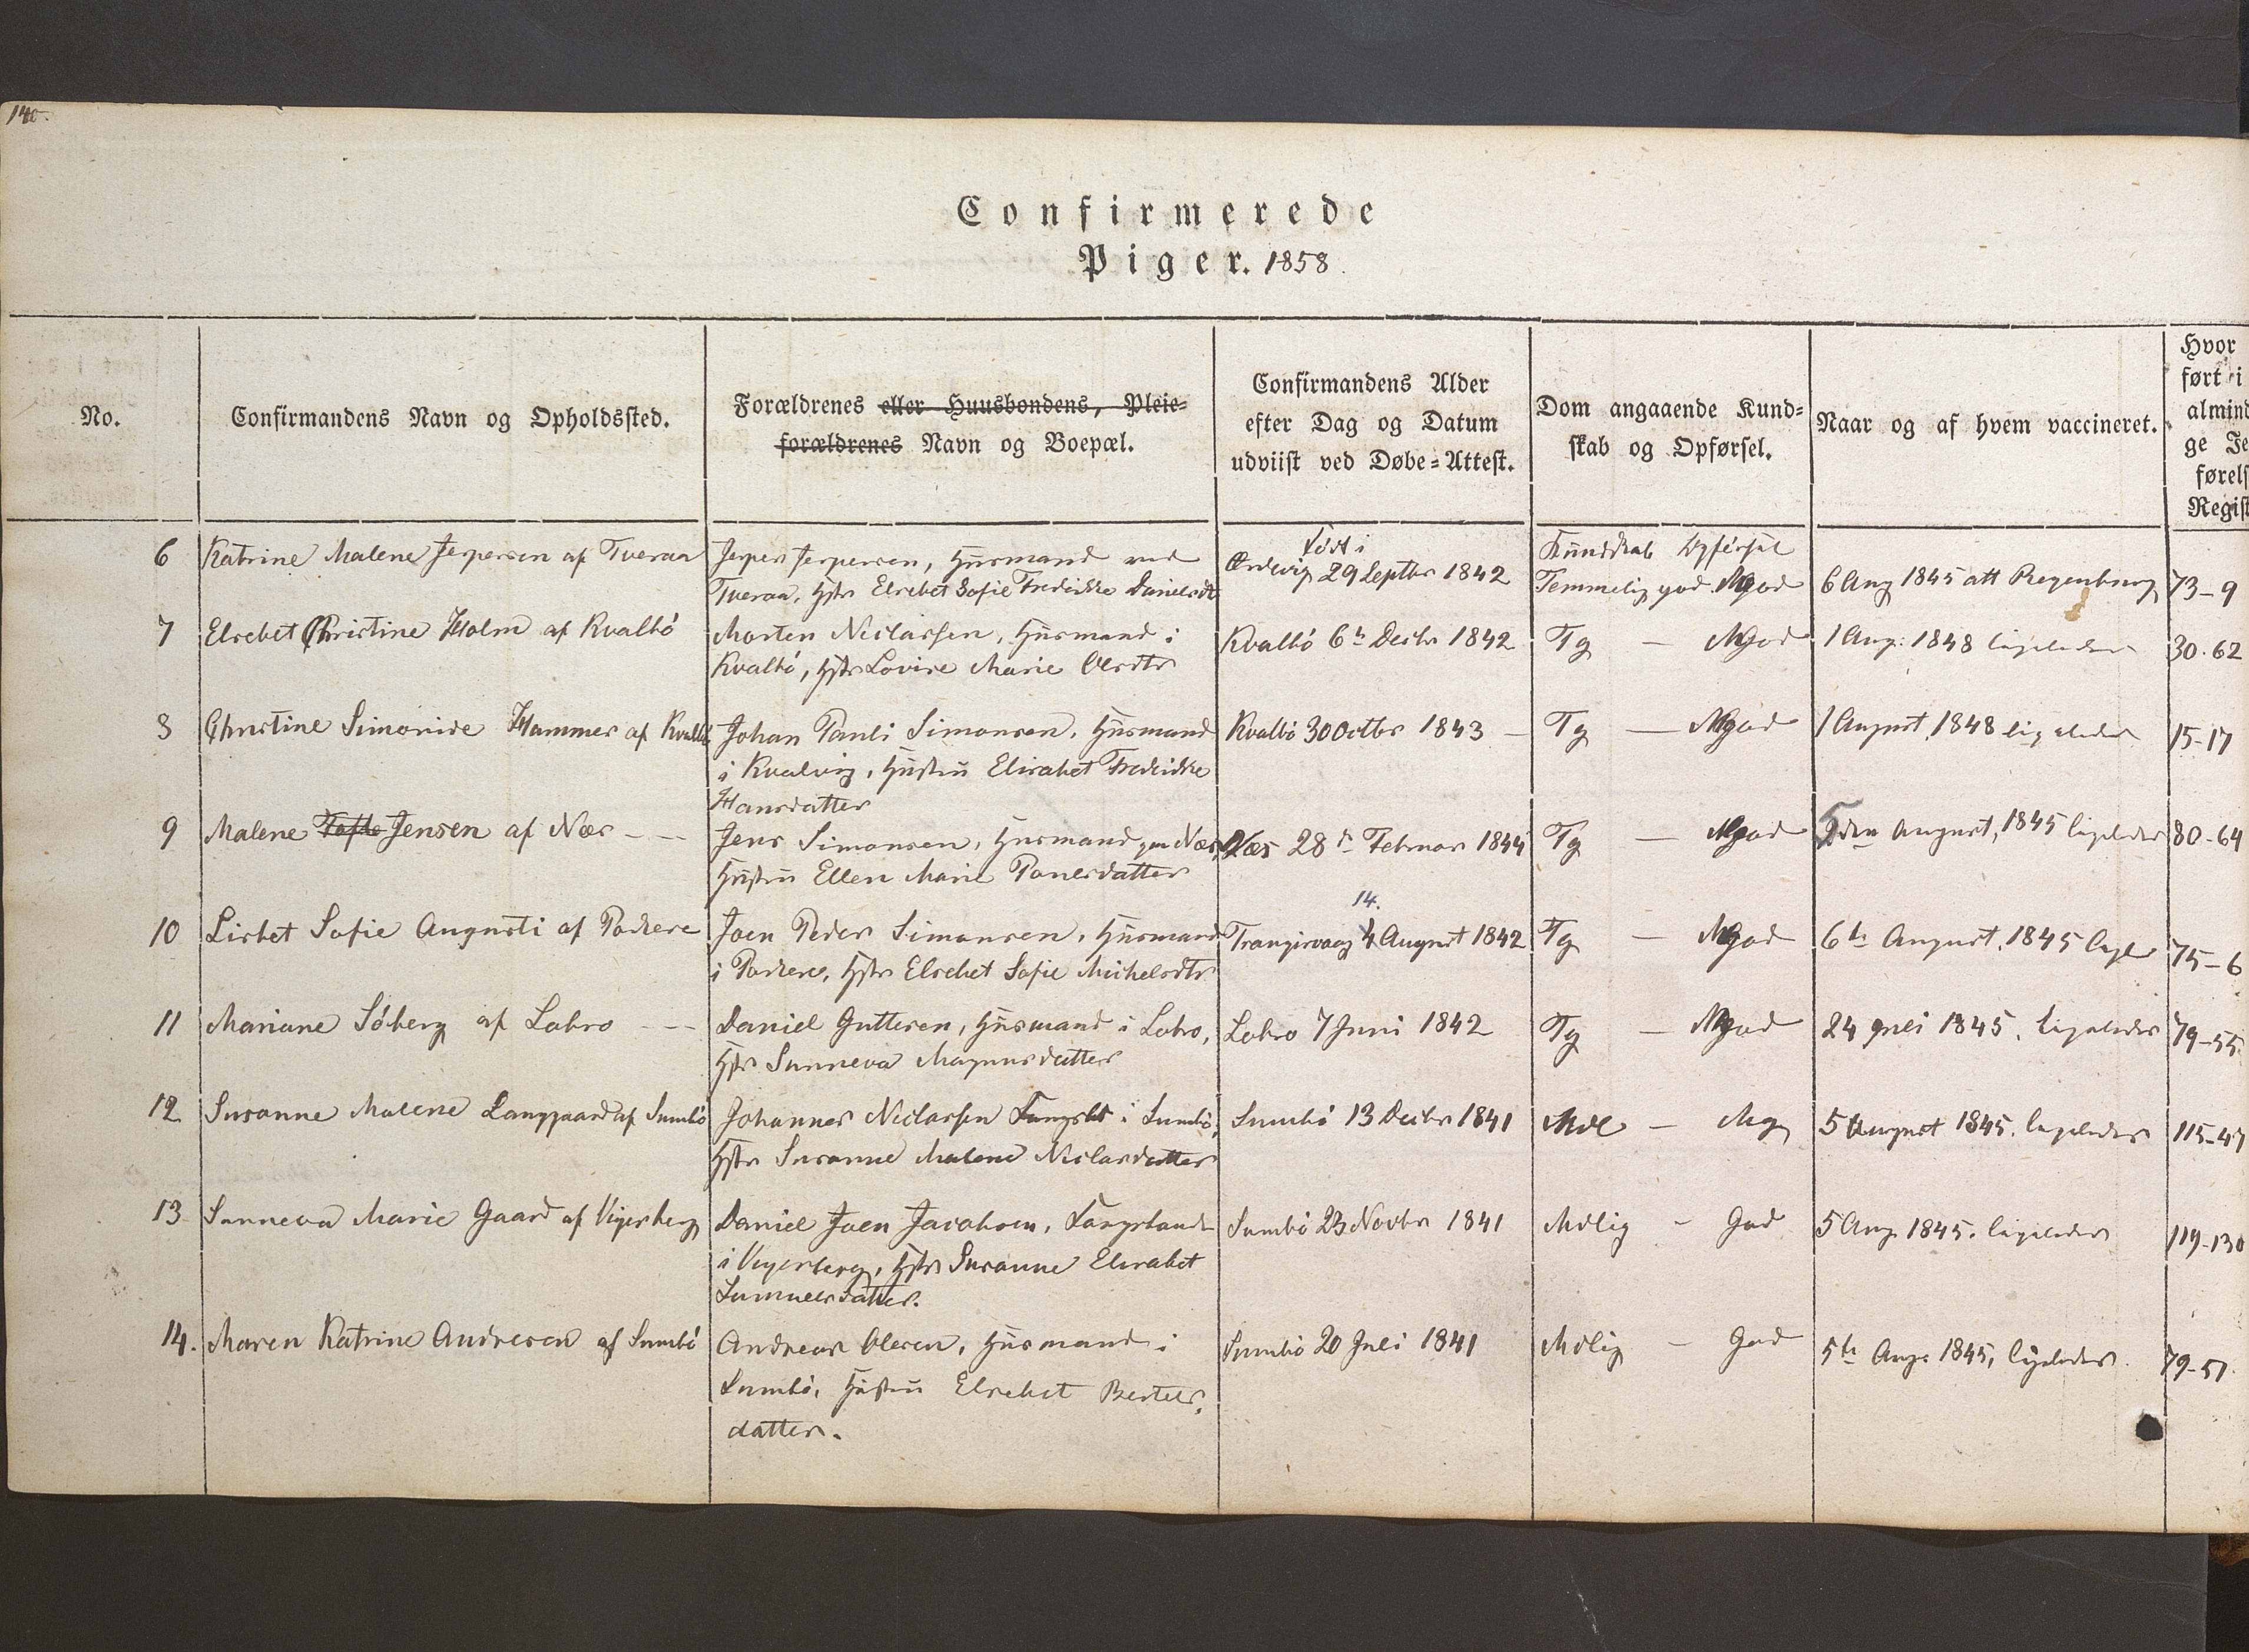 140.
Confirmerede
Piger. 1858.
No.
Confirmandens Navn og Opholdssted.
Forældrenes eller Huusbondens, Pleie-
forældrenes Navn og Boepæl.
Confirmandens Alder
efter Dag og Datum
udviist ved Døbe-Attest.
Dom angaaende Kund-
skab og Opførsel.
Naar og af hvem vaccineret.
Hvor
ført i
almind
ge Je
førels
Regist
6 Katrine Malene Jespersen af Tveraa
Jesper Jespersen, Huusmand ved
Tveraa, Hstr Elsebet Sofie Fredrikke Danielsdt
Født i
Ørdevig 29 Septbr 1842
Kundskab Opførsel
Temmelig god. Mgod
6 Aug 1845 att Regenburg
73-9
7 Elsebet Christine Holm af Kvalbö
Morten Niclassen, Huusmand i
Kvalbö, Hstr Lovise Marie Olesdtr
Kvalbö 6te Decbr 1842
Tg - Mgod
1 Aug: 1848 ligeledes
30-62
8 Christine Simonise Hammer af Kvalbö
Johan Pauli Simonsen, Huusmand
i Kvalvig, Hustru Elisabet Fredrikke
Hansdatter
Kvalbö 30 Octbr 1843 -
Tg - Mgod
1 August 1848 ligeledes
15-17
9 Malene Tofte Jensen af Næs - -
Jens Simonsen, Huusmand paa Næs,
Hustru Ellen Marie Poulsdatter
Næs 28de Februar 1844
Tg - Mgod
5den August, 1845 ligeledes
80-64
10 Lisbet Sofie Augusti af Porkere
Joen Peder Simonsen, Huusmand
i Porkere, Hstr Elsebet Sofie Michelsdtr
14.
Trangisvaag 4 August 1842
Tg - Mgod
6te August, 1845 ligel
75-6
11 Mariane Söberg af Lobro - -
Daniel Guttesen, Huusmand i Lobro,
Hstr Sunneva Magnusdatter
Lobro 7 Juni 1842
Tg - Mgod
24 Juli 1845. ligeledes
79-55
12 Susanne Malene Langgaard af Sumbö
Johannes Niclassen i Sumbö,
Hstr Susanne Malene Niclasdatter
Sumbö 13 Decbr 1841
Mdl - Mg
5 August 1845. ligeledes
115-47
13 Sunneva Marie Gaard af Vigerberg
Daniel Joen Jacobsen,
i Vigerberg, Hstr Susanne Elisabet
Samuelsdatter.
Sumbö 23 Novbr 1841
Mdlig - God
5 Aug. 1845. ligeledes
119-130
14. Maren Katrine Andresen af Sumbö
Andreas Olesen, Huusmand i
Sumbö, Hustru Elsebet Bertels-
datter.
Sumbö 20 Juli 1841
Mdlig - God
5te Aug. 1845, ligeledes.
79-51